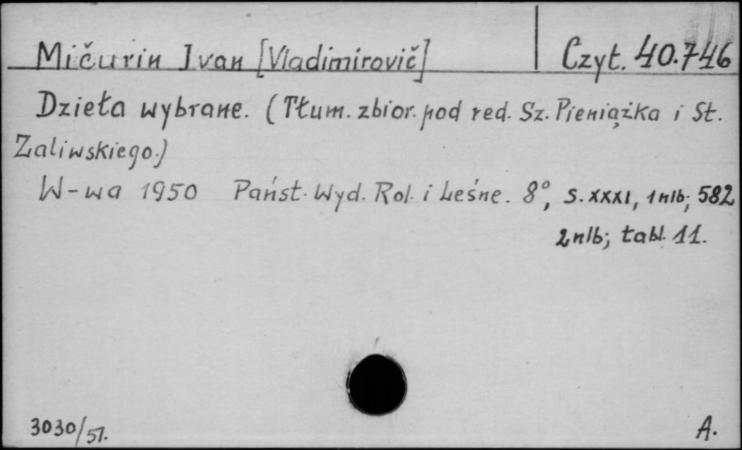 Mičurin Ivan [Vladimirovič] Czyt. 40.746
Dzieła wybrane. (Tłum. zbior. pod red. Sz. Pieniążka i St.
Zaliwskiego.)
W-wa 1950 Państ. Wyd. Rol. i Leśne. 8°, s. XXXI, 1 nlb; 582
2 nlb; tabl. 11.
3030/51. A.